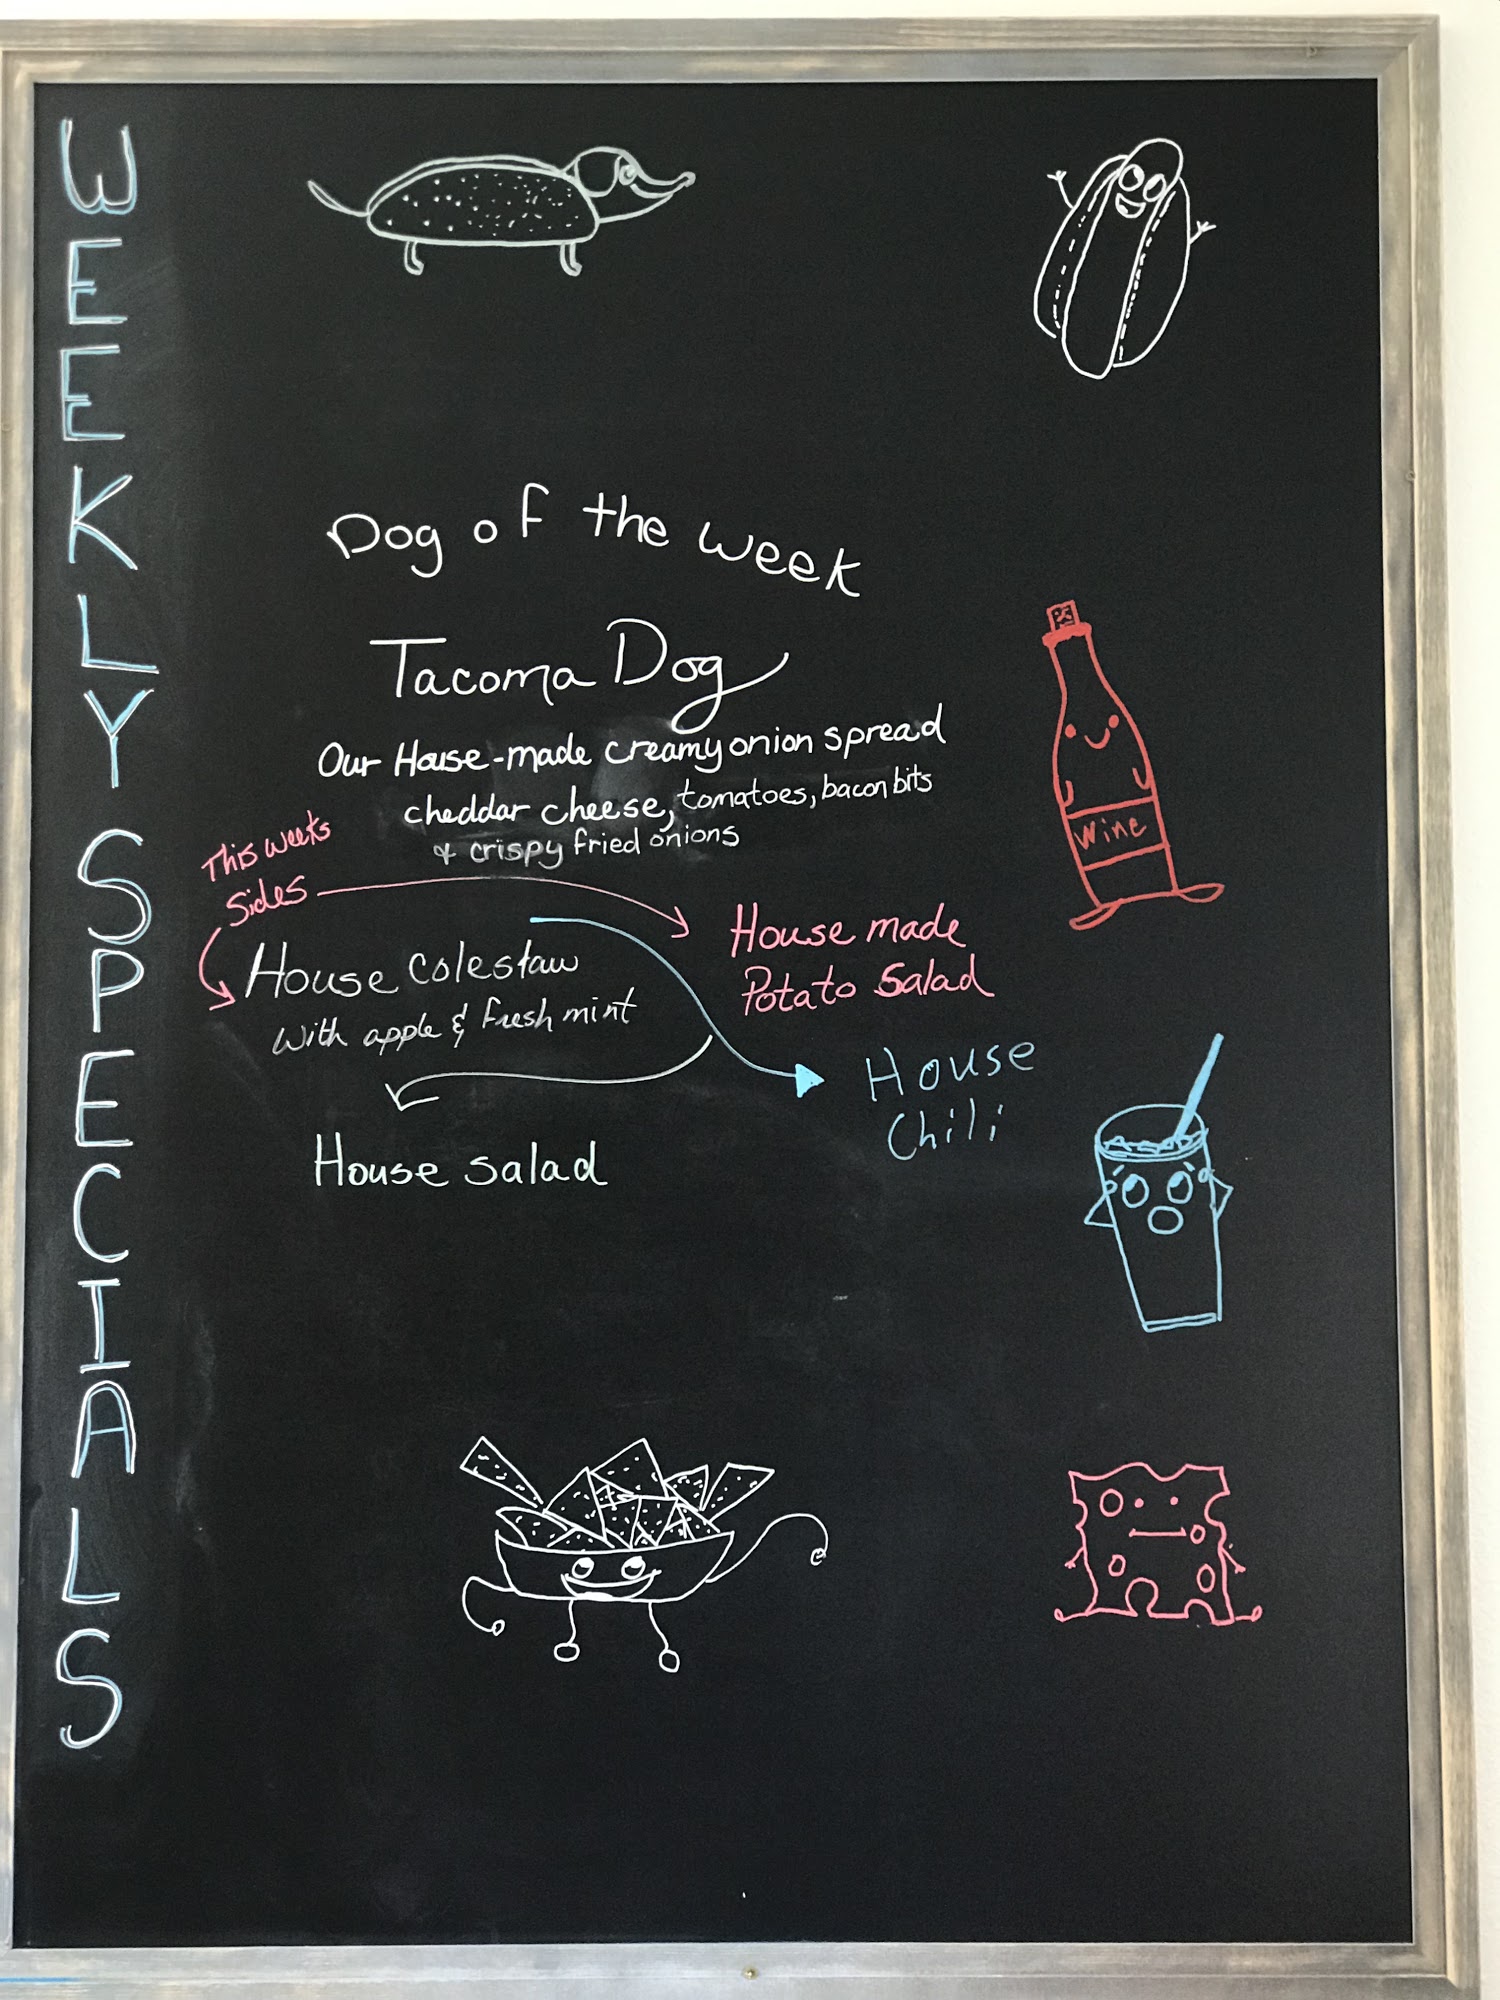 WEEKLY SPECIALS
Dog of the week
Tacoma Dog
Our House-made creamy onion spread
cheddar cheese, tomatoes, bacon bits
& crispy fried onions
This weeks
sides
House coleslaw
with apple & fresh mint
House made
Potato Salad
House
Chili
House salad
Wine